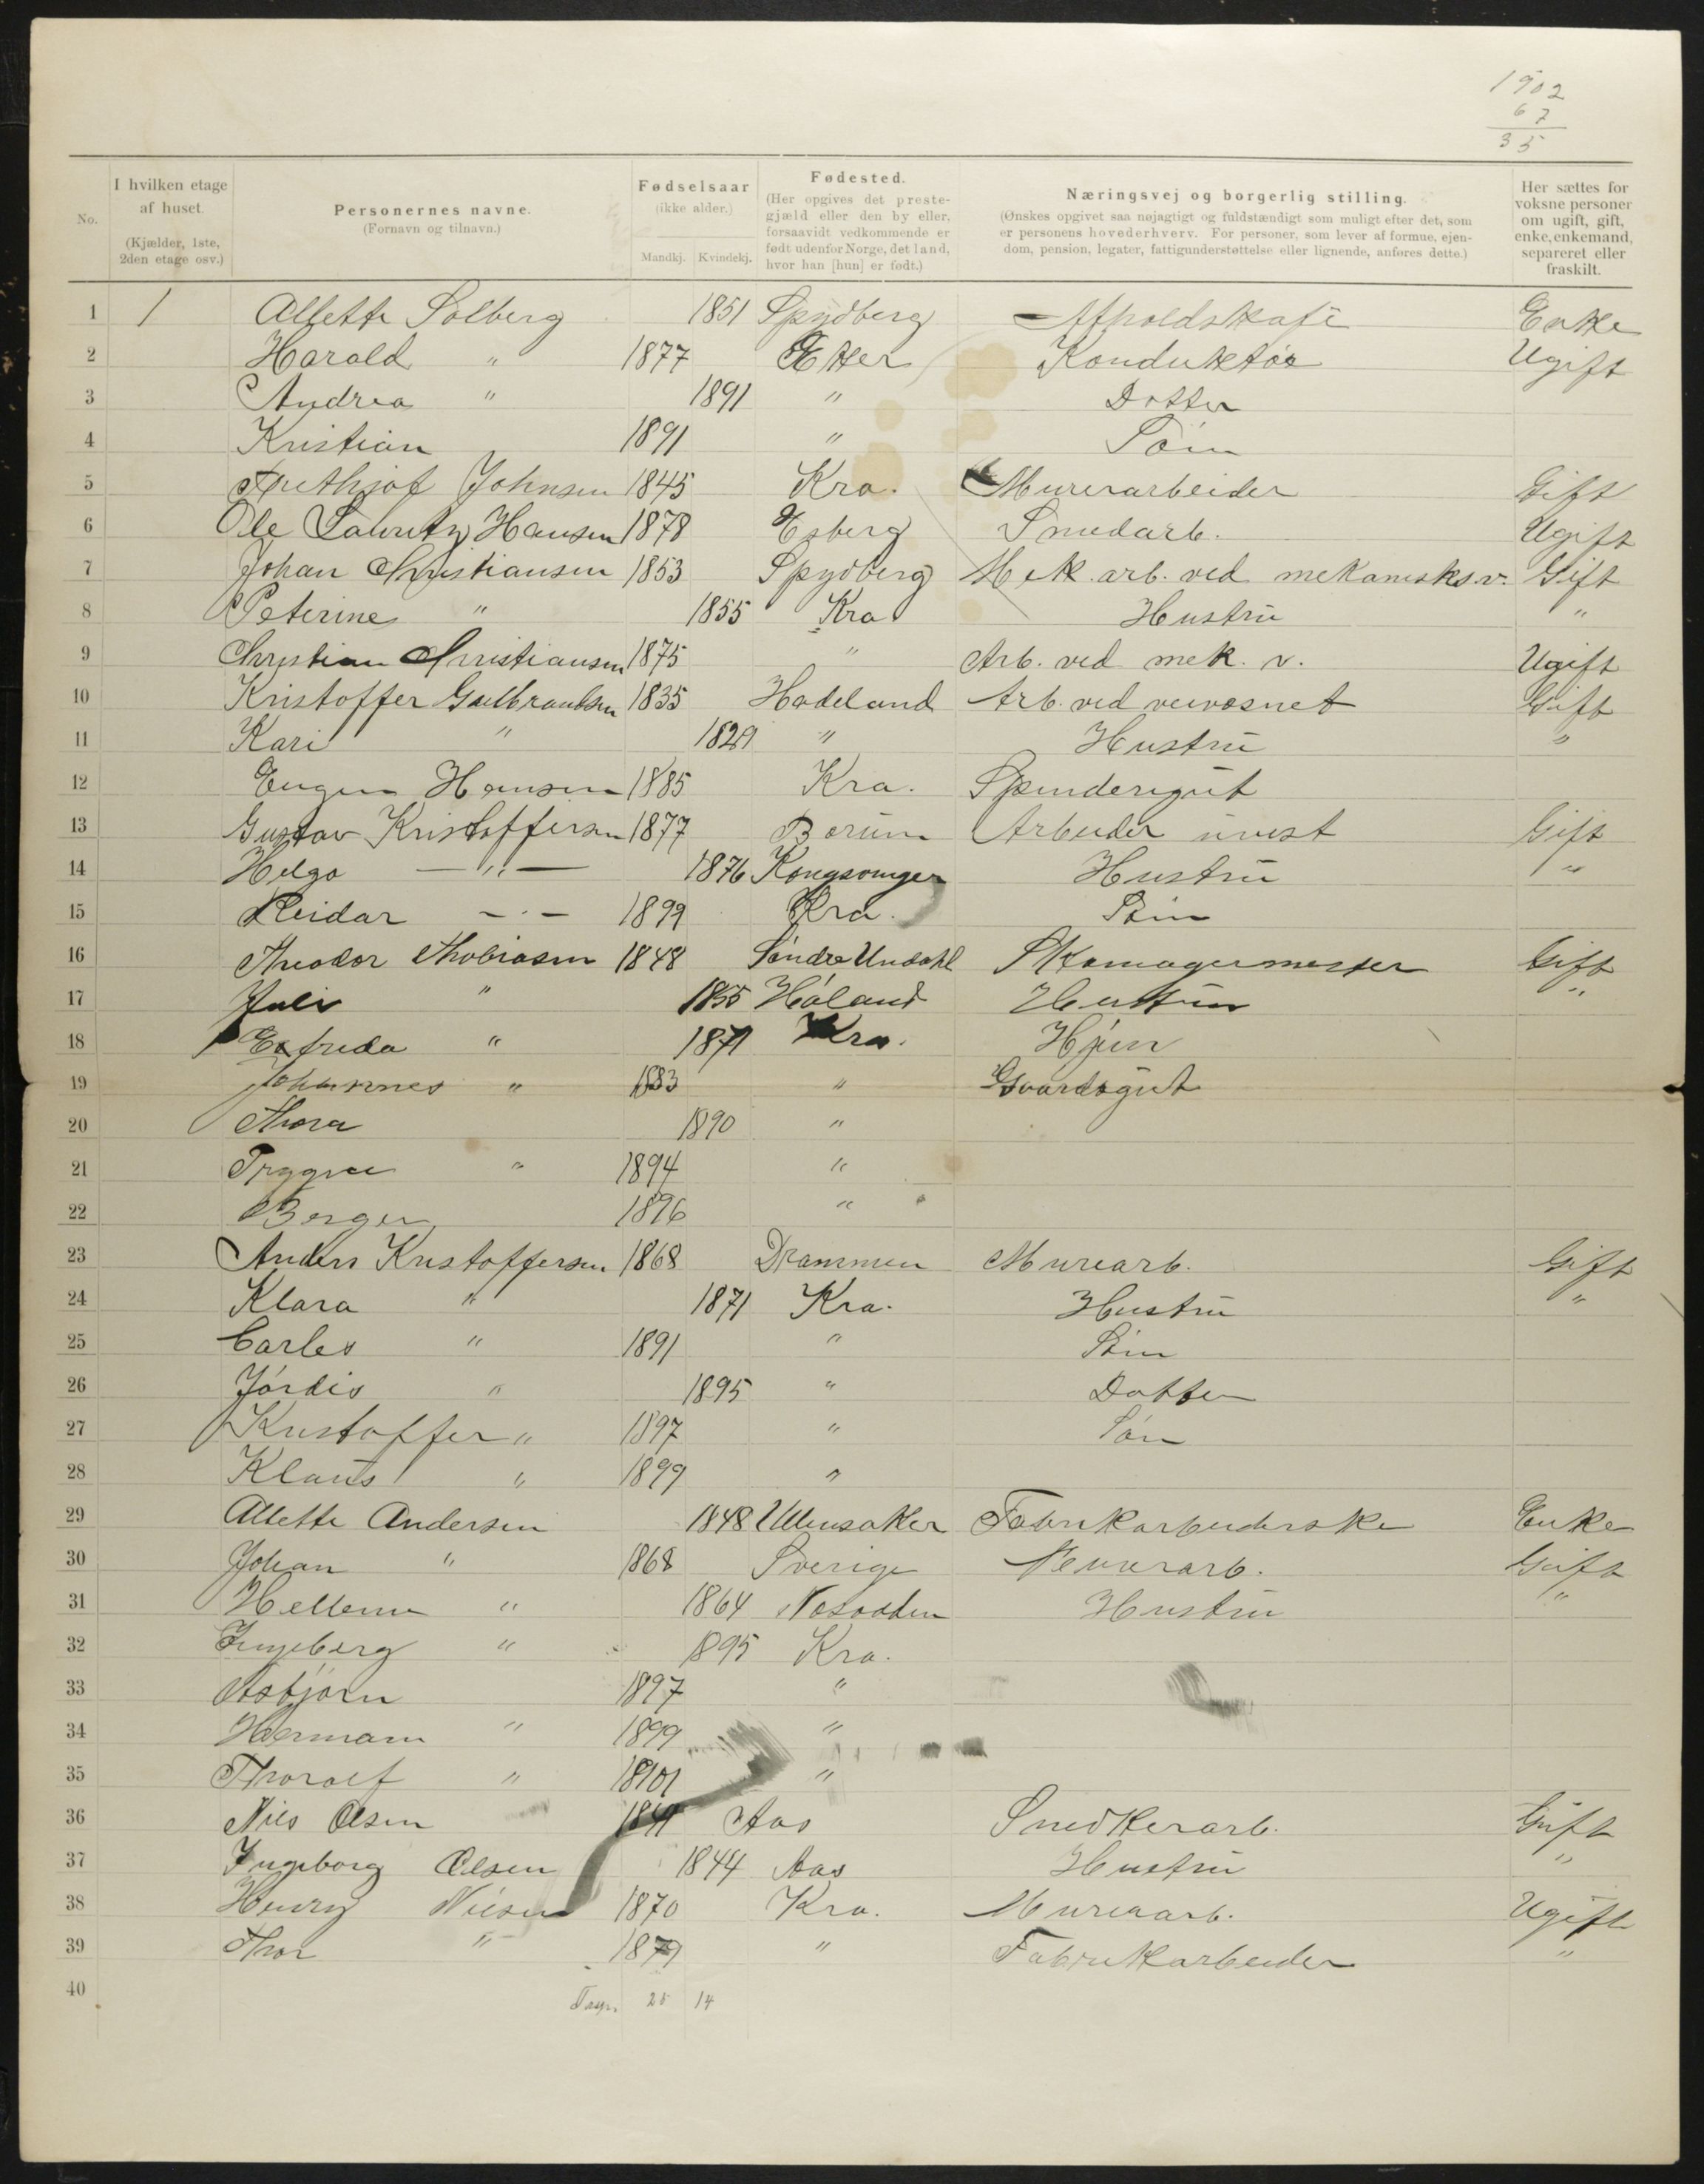 1902
67
35
No.
I hvilken etage af huset. (Kjælder, 1ste, 2den etage osv.)
Personernes navne. (Fornavn og tilnavn.)
Fødselsaar (ikke alder.) Mandkj. Kvindekj.
Fødested. (Her opgives det prestegjæld eller den by eller, forsaavidt vedkommende er født udenfor Norge, det land, hvor han [hun] er født.)
Næringsvej og borgerlig stilling. (Ønskes opgivet saa nøjagtigt og fuldstændigt som muligt efter det, som er personens hovederhverv. For personer, som lever af formue, ejendom, pension, legater, fattigunderstøttelse eller lignende, anføres dette.)
Her sættes for voksne personer om ugift, gift, enke, enkemand, separeret eller fraskilt.
1 1 Allette Solberg 1851 Spydberg Afholdskafe Enke
2 Harald " 1877 Konduktør Ugift
3 Andrea " 1891 " Datter
4 Kristian 1891 " Søn
5 Johnsen 1845 Kra. Murerarbeider Gift
6 Ole Lauritz Hansen 1878 Smedarb. Ugift
7 Johan Christiansen 1853 Spydberg Mek. arb. ved mekanisk v. Gift
8 Peterine " 1855 Kra Hustru "
9 Christian Christiansen 1875 " Arb. ved mek. v. Ugift
10 Kristoffer Gulbrandsen 1835 Hadeland Arb. ved veivæsnet Gift
11 Kari " " Hustru "
12 Eugen Hansen 1885 Kra. Spinderigut
13 Gustav Kristoffersen 1877 Bærum Arbeider Gift
14 Helga — " — 1876 Kongsvinger Hustru "
15 Reidar — " — 1899 Kra. Søn
16 Theodor Thobiasen 1848 Søndre Undahl Skomagermester Gift
17 " 1855 Høland Hustru "
18 " Kra. Hjem
19 Johannes " 1883 " Gaardsgut
20 Thora 1890 "
21 Trygve " 1894 "
22 Berger 1896 "
23 Anders Kristoffersen 1868 Drammen Murearb. Gift
24 Klara " 1871 Kra. Hustru "
25 Carles " 1891 " Søn
26 Jórdis " 1895 " Datter
27 Kristoffer " 1897 " Søn
28 Klaus " 1899 "
29 Allette Andersen 1848 Ullensaker Fabrikarbeiderske Enke
30 Johan " 1868 Sverige Murerarb. Gift
31 " 1864 Nesodden Hustru "
32 Ingeborg " 1895 Kra.
33 Asbjørn 1897 "
34 Hermann " 1899 "
35 Thoralf " "
36 Nils Olsen Aas Snedkerarb. Gift
37 Ingeborg Olsen 1844 Aas Hustru "
38 Henry Nilsen 1870 Kra. Murerarb. Ugift
39 Thor " 1879 " Fabrikkarbeider "
40
25 14